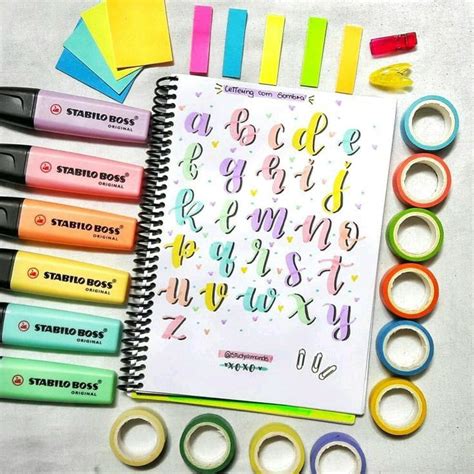 Lettering com Sombra
a b c d e
f g h i j
k l m n o
p q r s t
u v w x y
z
xoxo
STABILO BOSS
ORIGINAL
STABILO BOSS
ORIGINAL
STABILO BOSS
ORIGINAL
STABILO BOSS
ORIGINAL
STABILO BOSS
ORIGINAL
STABILO BOSS
ORIGINAL